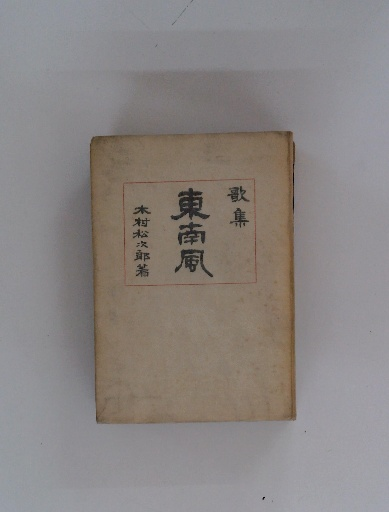 歌集
東南風
木村松次郎著